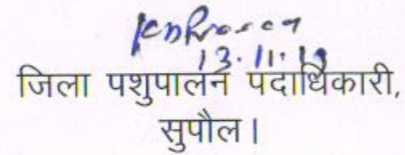 13.11.19
जिला पशुपालन पदाधिकारी,
सुपौल।